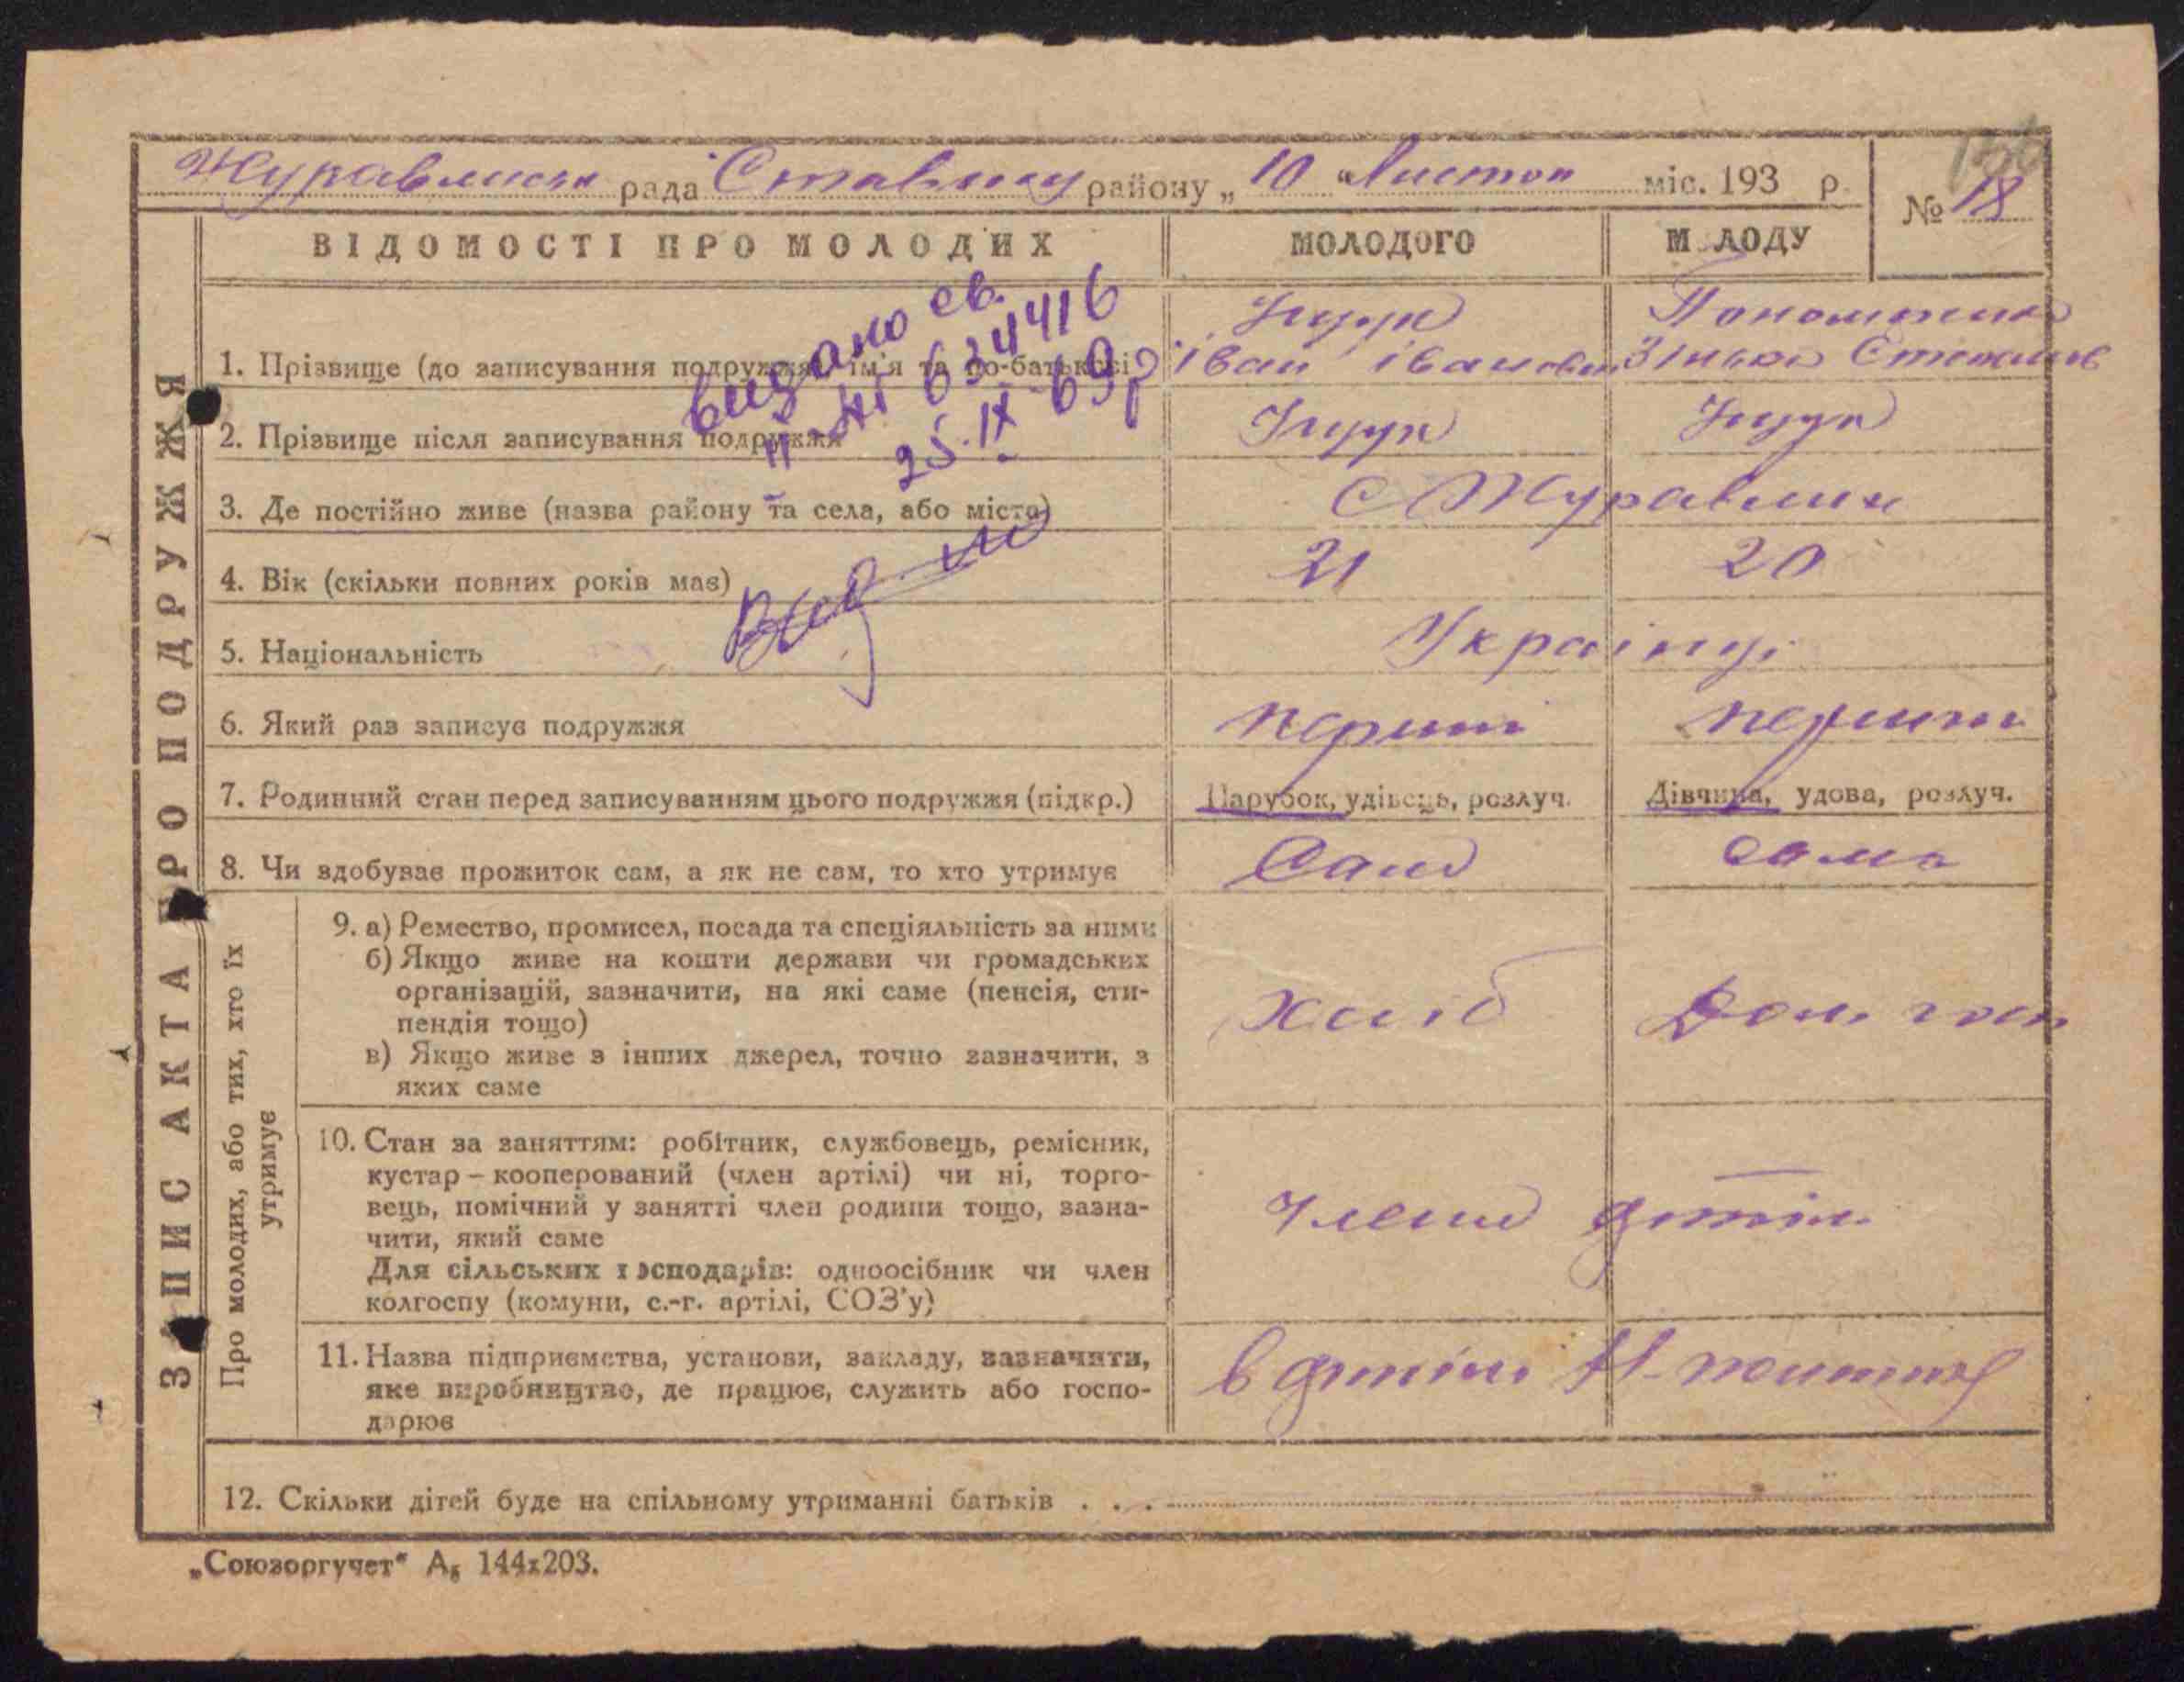 Журавлиська рада Ставищ району „ 10 " Листоп міс. 193 р.
№ 18
ВІДОМОСТІ ПРО МОЛОДИХ
МОЛОДОГО
МОЛОДУ
ЗАПИС АКТА ПРО ПОДРУЖЖЯ
видано св.
634416
25.IX 69р
1. Прізвище (до записування подружжя) ім'я та по-батькові
Іван Іванови
Зінька Степанов
2. Прізвище після записування подружжя
3. Де постійно живе (назва району та села, або міста)
С Журавлиха
4. Вік (скільки повних років має)
21
20
Видано
5. Національність
Українці
6. Який раз записує подружжя
перши
перши
7. Родинний стан перед записуванням цього подружжя (підкр.)
Парубок, удівець, розлуч.
Дівчина, удова, розлуч.
8. Чи здобуває прожиток сам, а як не сам, то хто утримує
Сам
сама
Про молодих, або тих, хто їх утримує
9. а) Ремество, промисел, посада та спеціяльність за ними
б) Якщо живе на кошти держави чи громадських
організацій, зазначити, на які саме (пенсія, сти-
пендія тощо)
в) Якщо живе з інших джерел, точно зазначити, з
яких саме
хліб
Дом. госп
10. Стан за заняттям: робітник, службовець, ремісник,
кустар – кооперований (член артілі) чи ні, торго-
вець, помічний у занятті член родини тощо, зазна-
чити, який саме
Для сільських господарів: одноосібник чи член
колгоспу (комуни, с.-г. артілі, СОЗ'у)
члени артіли
11. Назва підприємства, установи, закладу, зазначити,
яке виробництво, де працює, служить або госпо-
дарює
в артілі
12. Скільки дітей буде на спільному утриманні батьків . . .
„Союзоргучет" А₅ 144х203.